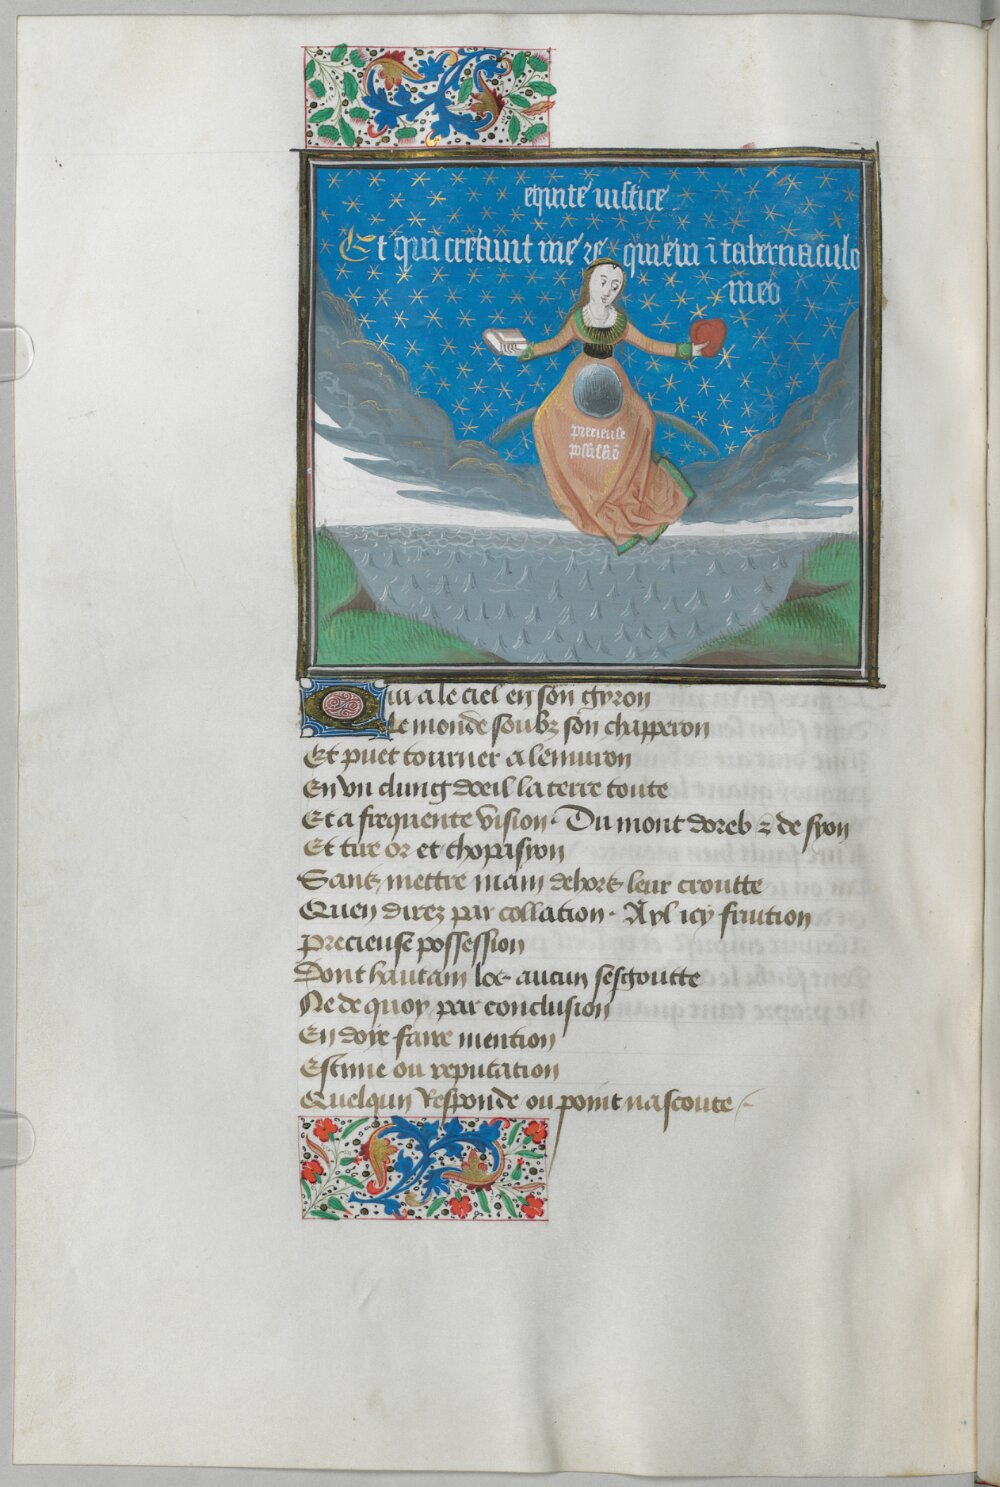 equite iustice
Et qui creauit me re quieui ī tabernaculo
meo
precieuse
possessiō
Qui a le ciel en son gyron
Le monde soubz son chapperon
Et puet tourner a lenuiron
En vn clung doeil la terre toute
Et a frequente vision· Du mont doreb ⁊ de syon
Et tire or et thopasyon
Sans mettre main dehors leur croutte
Quen direz par collation· Ayl icy fruition
Precieuse possession
Dont hautain los aucun sesgoutte
Ne de quoy par conclusion
En doye faire mention
Estime ou reputation
Quelqun Responde ou point nascoute